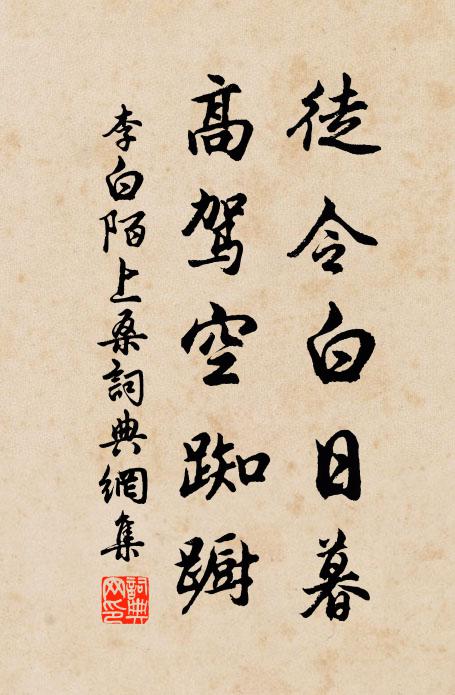 徒令白日暮
高駕空踟躕
李白陌上桑詞典網集
詞典
网印